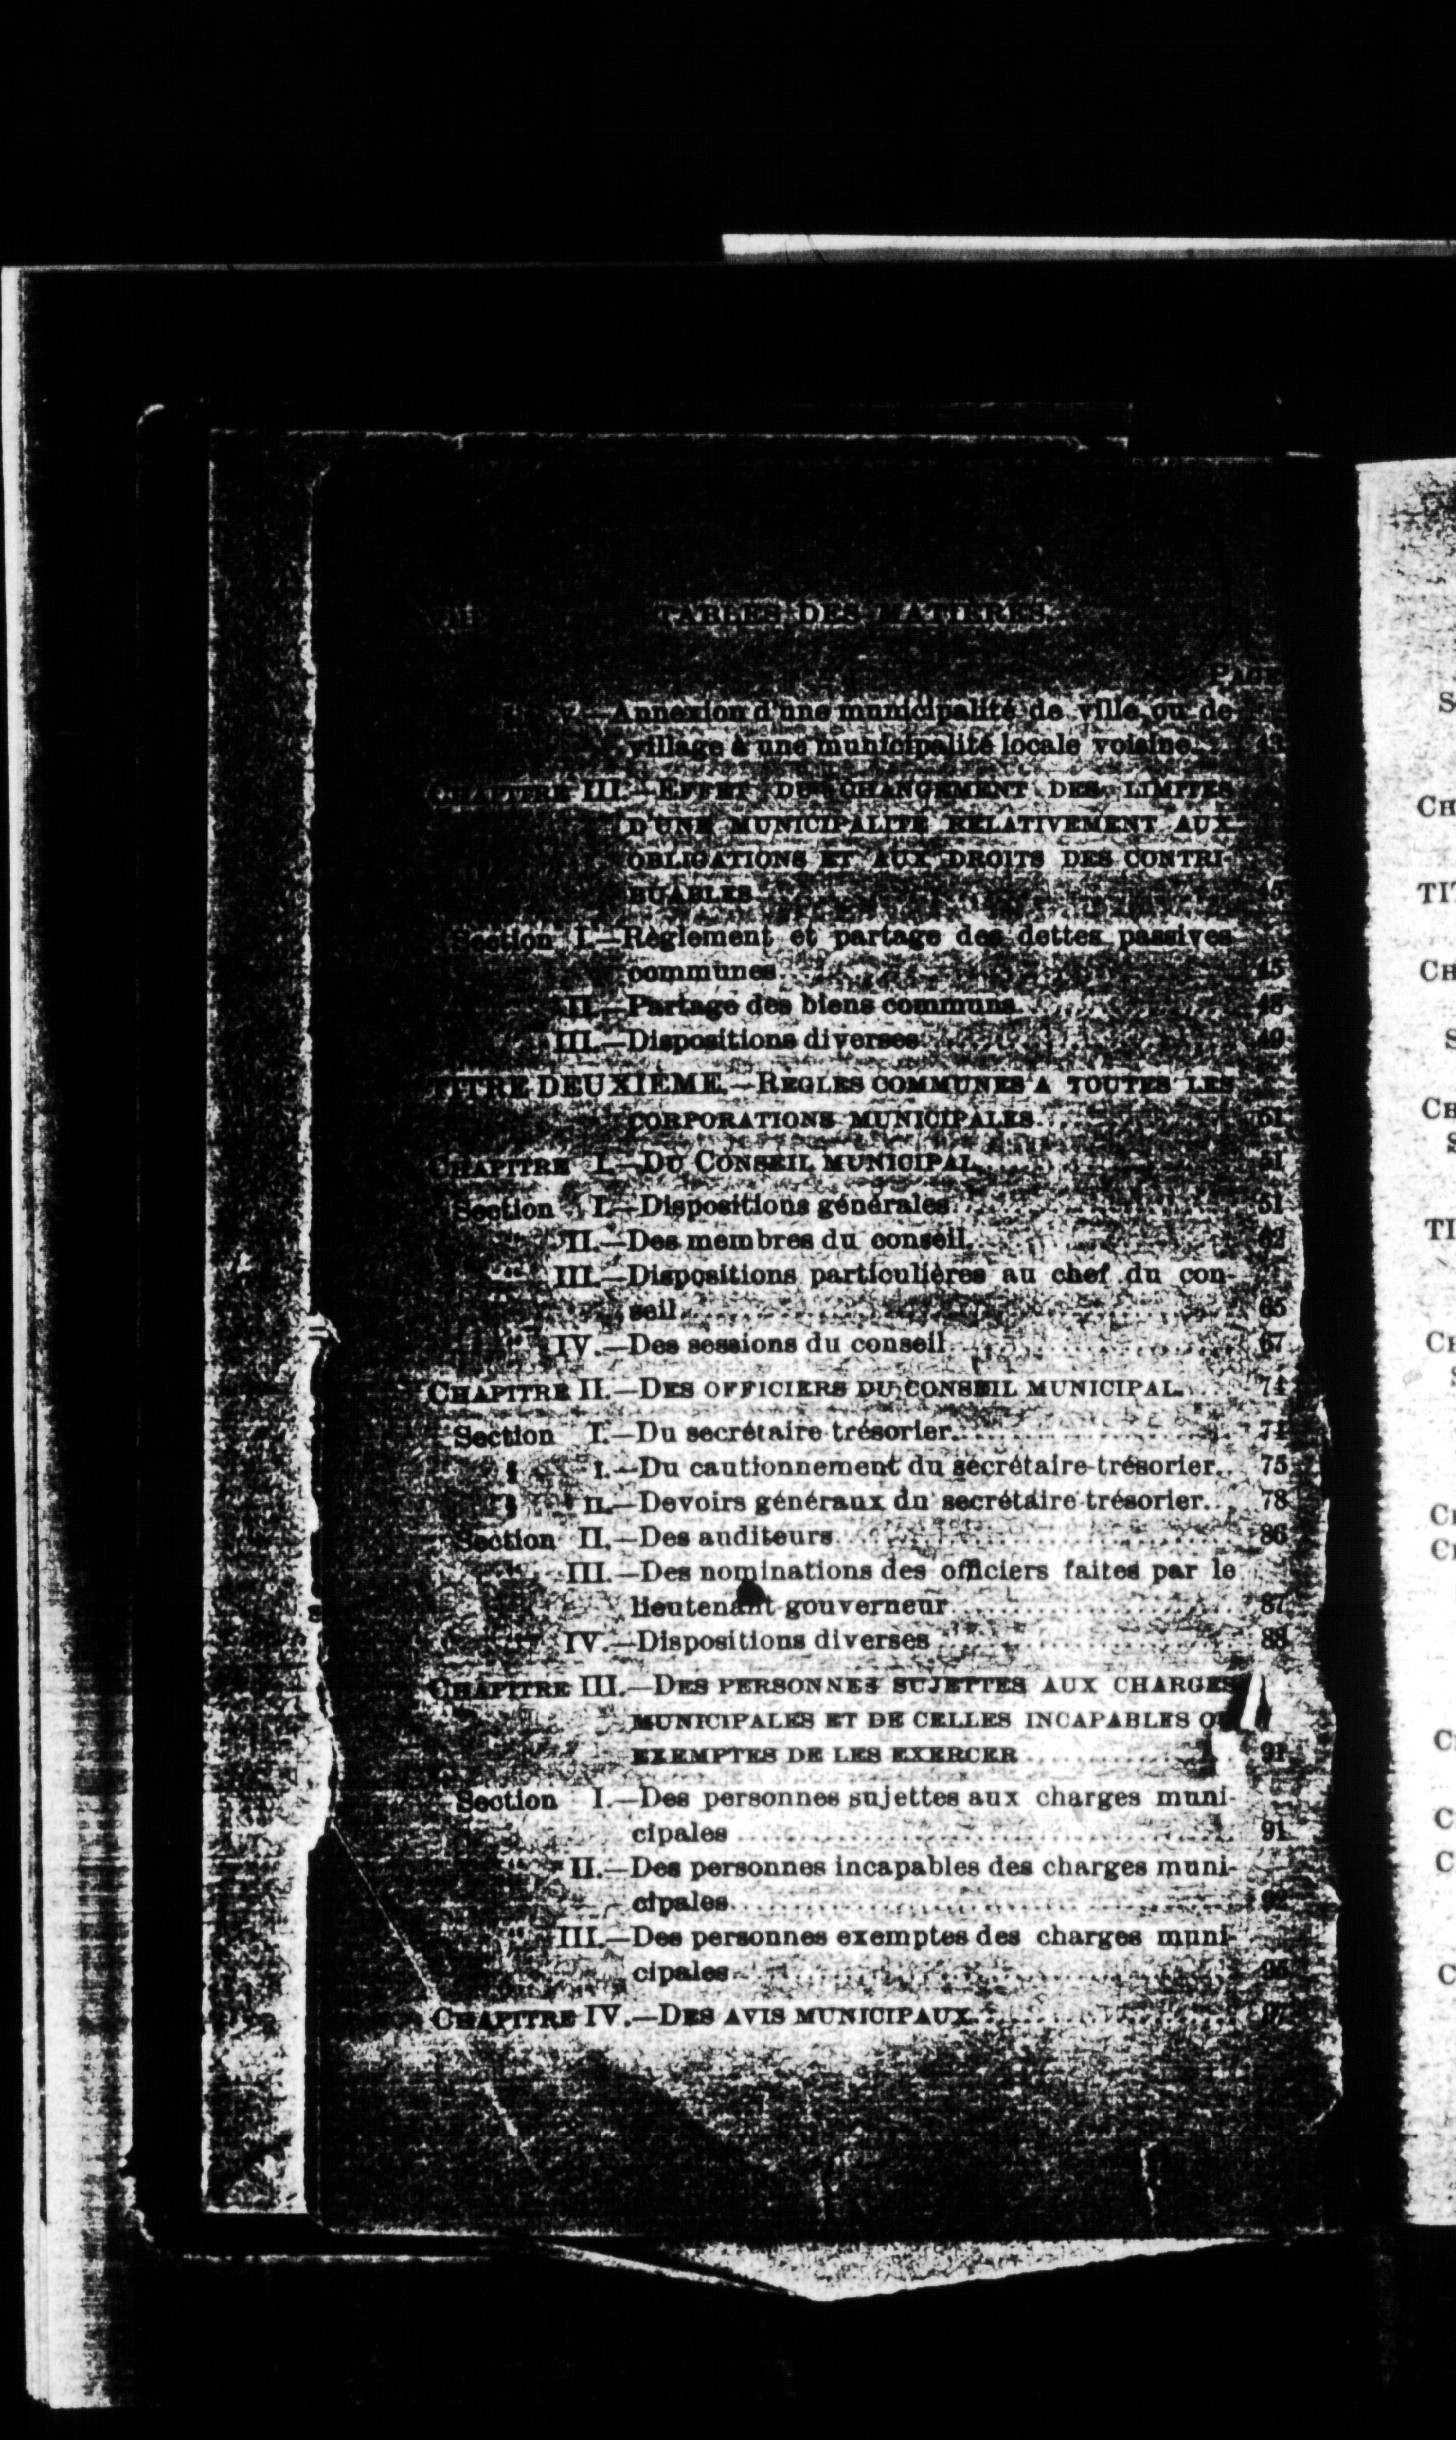 TABLES DES MATIERES.
PAGE
V.—Annexion d'une municipalité de ville ou de
village à une municipalité locale voisine...
CHAPITRE III.—EFFET DU CHANGEMENT DES LIMITES
D'UNE MUNICIPALITÉ RELATIVEMENT AUX
OBLIGATIONS ET AUX DROITS DES CONTRI-
BUABLES.......... 45
Section I.—Règlement et partage des dettes passives
communes.......... 45
II.—Partage des biens communs.......... 48
III.—Dispositions diverses.......... 49
TITRE DEUXIÈME.—REGLES COMMUNES A TOUTES LES
CORPORATIONS MUNICIPALES.......... 51
CHAPITRE I.—DU CONSEIL MUNICIPAL.......... 51
Section I.—Dispositions générales.......... 51
" II.—Des membres du conseil.......... 62
" III.—Dispositions particulières au chef du con-
seil.......... 65
" IV.—Des sessions du conseil.......... 67
CHAPITRE II.—DES OFFICIERS DU CONSEIL MUNICIPAL.... 74
Section I.—Du secrétaire-trésorier.......... 74
§ I.—Du cautionnement du secrétaire-trésorier.. 75
§ II.—Devoirs généraux du secrétaire-trésorier... 78
Section II.—Des auditeurs.......... 86
" III.—Des nominations des officiers faites par le
lieutenant-gouverneur.......... 87
" IV.—Dispositions diverses.......... 88
CHAPITRE III.—DES PERSONNES SUJETTES AUX CHARGES
MUNICIPALES ET DE CELLES INCAPABLES
EXEMPTES DE LES EXERCER.......... 91
Section I.—Des personnes sujettes aux charges muni-
cipales.......... 91
" II.—Des personnes incapables des charges muni-
cipales.......... 92
" III.—Des personnes exemptes des charges muni-
cipales.......... 95
CHAPITRE IV.—DES AVIS MUNICIPAUX.......... 97